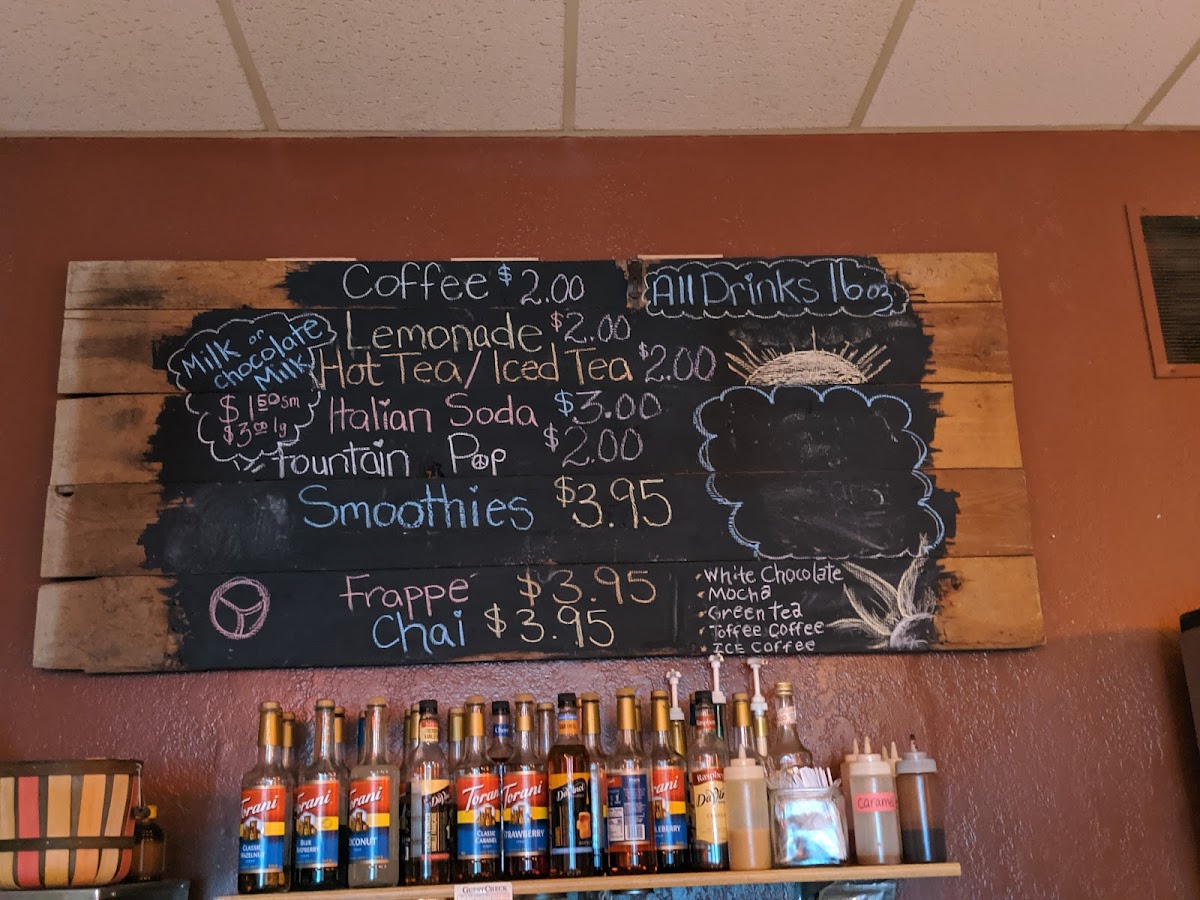 Coffee $2.00
All Drinks 16oz
Lemonade $2.00
Milk or
chocolate
Milk
$1.50 sm
$3.00 lg
Hot Tea/Iced Tea $2.00
Italian Soda $3.00
fountain Pop $2.00
Smoothies $3.95
Frappe $3.95
Chai $3.95
White Chocolate
Mocha
Green tea
Toffee Coffee
ICE Coffee
TORANI
CLASSIC
HAZELNUT
TORANI
BLUE
RASPBERRY
TORANI
COCONUT
DaVinci
TORANI
CLASSIC
CARAMEL
TORANI
STRAWBERRY
DaVinci
Raspberry
Caramel
GUEST CHECK